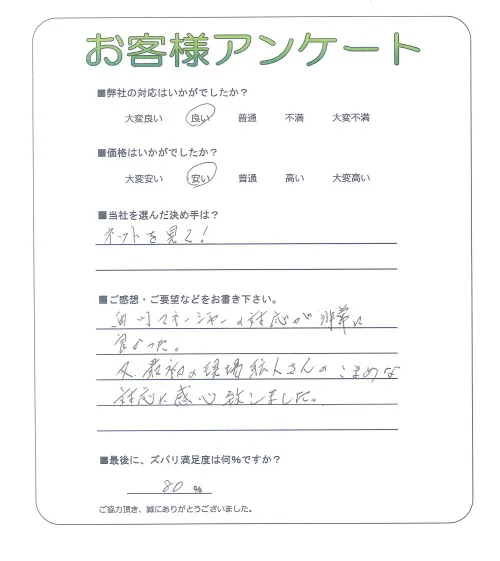 お客様アンケート
■弊社の対応はいかがでしたか？
大変良い 良い 普通 不満 大変不満
■価格はいかがでしたか？
大変安い 安い 普通 高い 大変高い
■当社を選んだ決め手は？
ネットを見て！
■ご感想・ご要望などをお書き下さい。
川マネージャーの対応が非常に
良かった。
又、最初の現場 人さんのこまめな
対応に感心致しました。
■最後に、ズバリ満足度は何%ですか？
80 %
ご協力頂き、誠にありがとうございました。